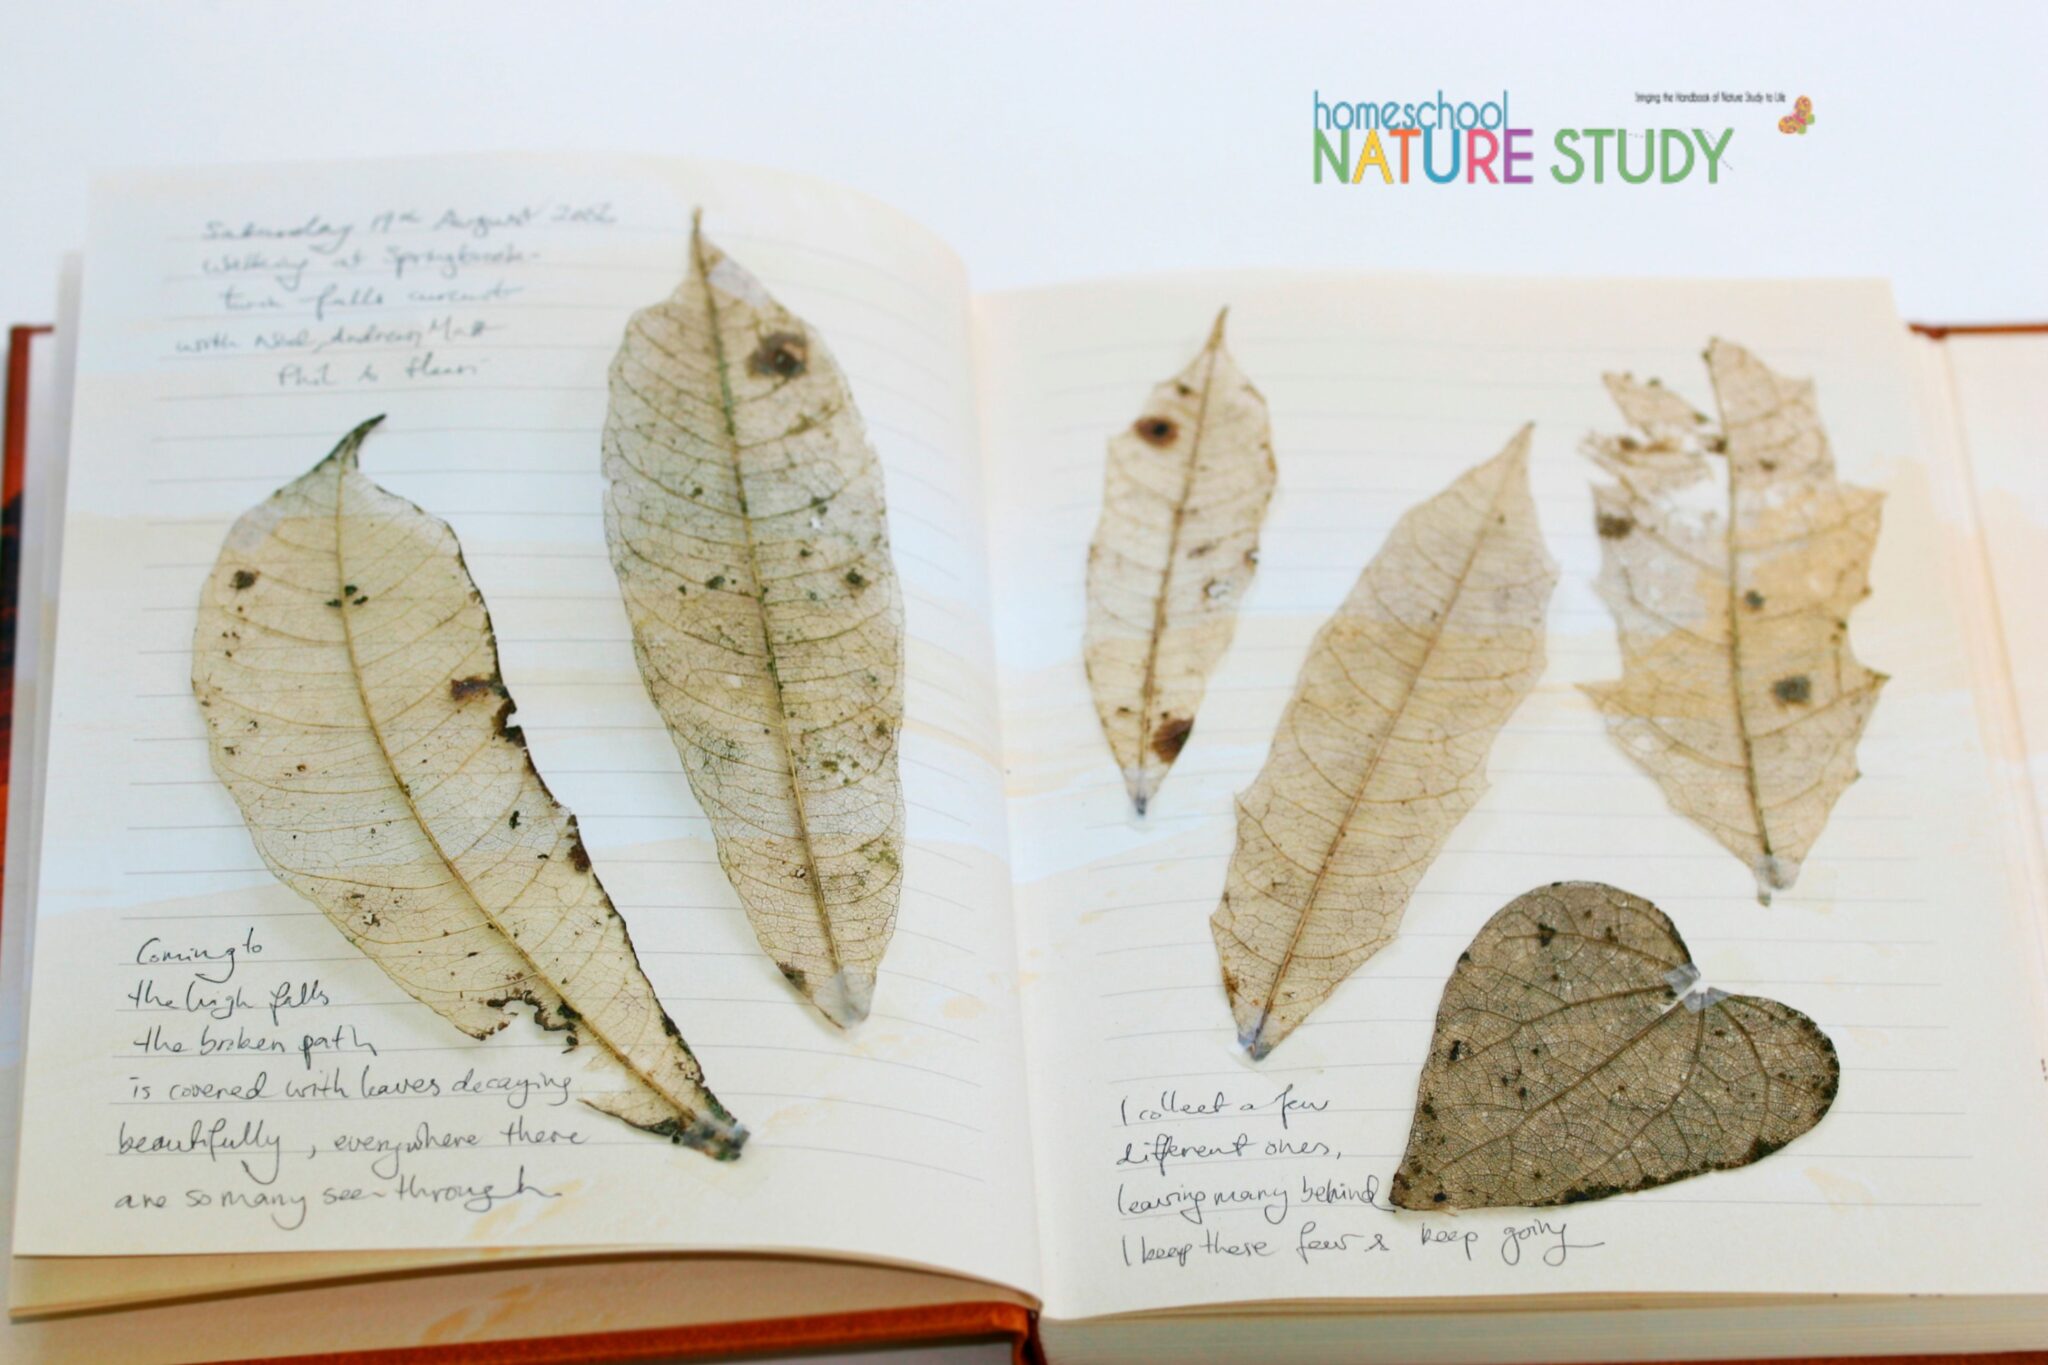 homeschool
Bringing the Handbook of Nature Study to Life
NATURE STUDY
Saturday August 2002
Walking at Springbrook -
twin falls circuit
with Andrew, Matt
Phil &
Coming to
the high falls
the broken path
is covered with leaves decaying
beautifully, everywhere there
are so many see through
I collect a few
different ones,
leaving many behind
I keep these few & keep going